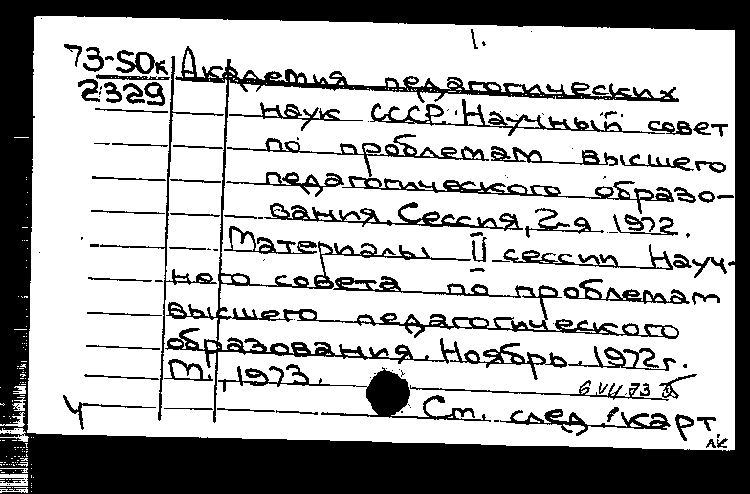 1.
73-50к Академия педагогических
2329 наук СССР. Научный совет
по проблемам высшего
педагогического образо-
вания. Сессия, 2-я 1972.
Материалы II сессии Науч-
ного совета по проблемам
высшего педагогического
образования. Ноябрь. 1972г.
М., 1973.
6 VII 73
Ч См. след. карт.
лк